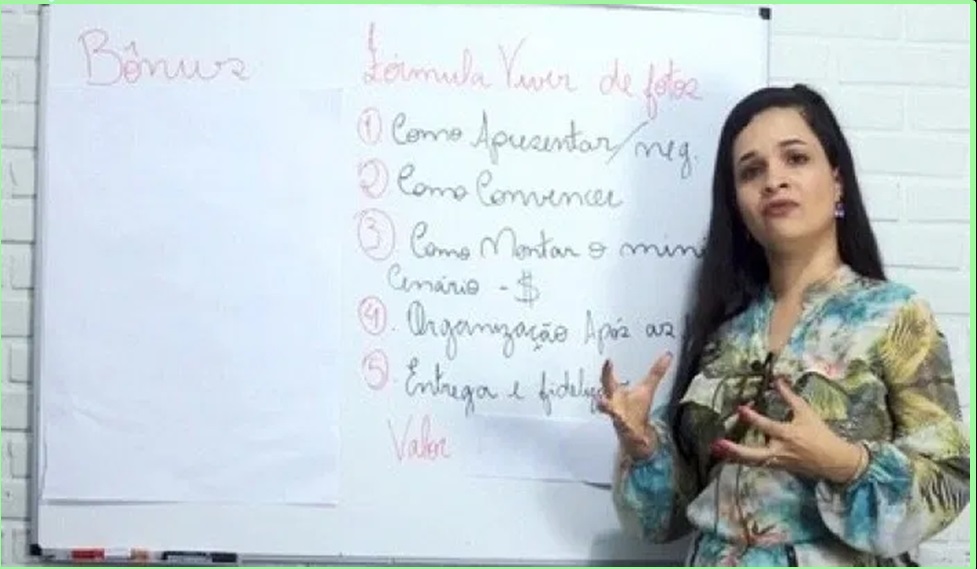 Bônus
Fórmula Viver de fotos
1 Como Apresentar/neg.
2 Como Convencer
3 Como Montar o mini
Cenário - $
4. Organização Após as
5. Entrega e
Valor